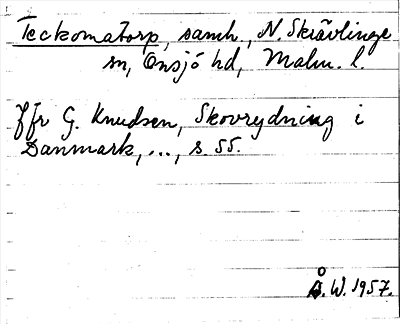 Teckomatorp, samh., N. Skrävlinge
sn, Onsjö hd, Malm. l.
Jfr G. Knudsen, Skovrydning i
Danmark, ..., s. 55.
Å. W. 1957.